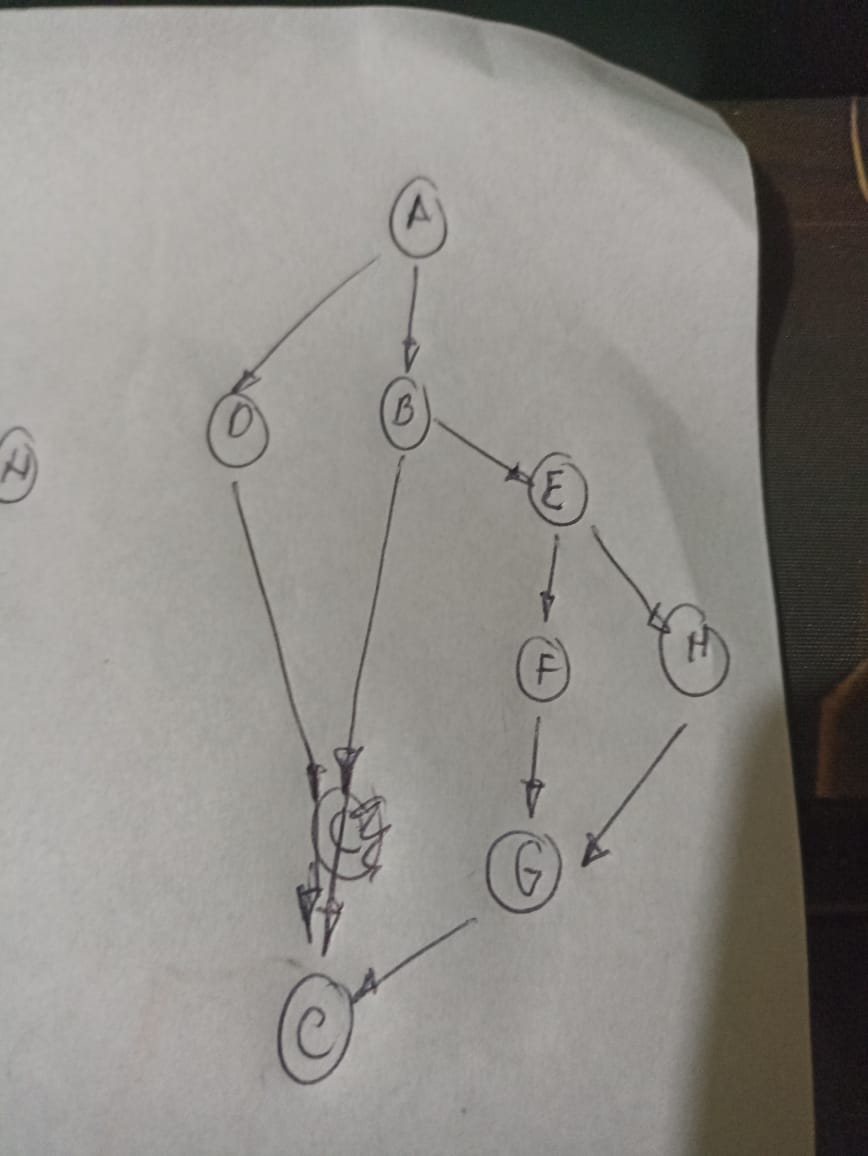 A
D B
N
E
F H
G
C